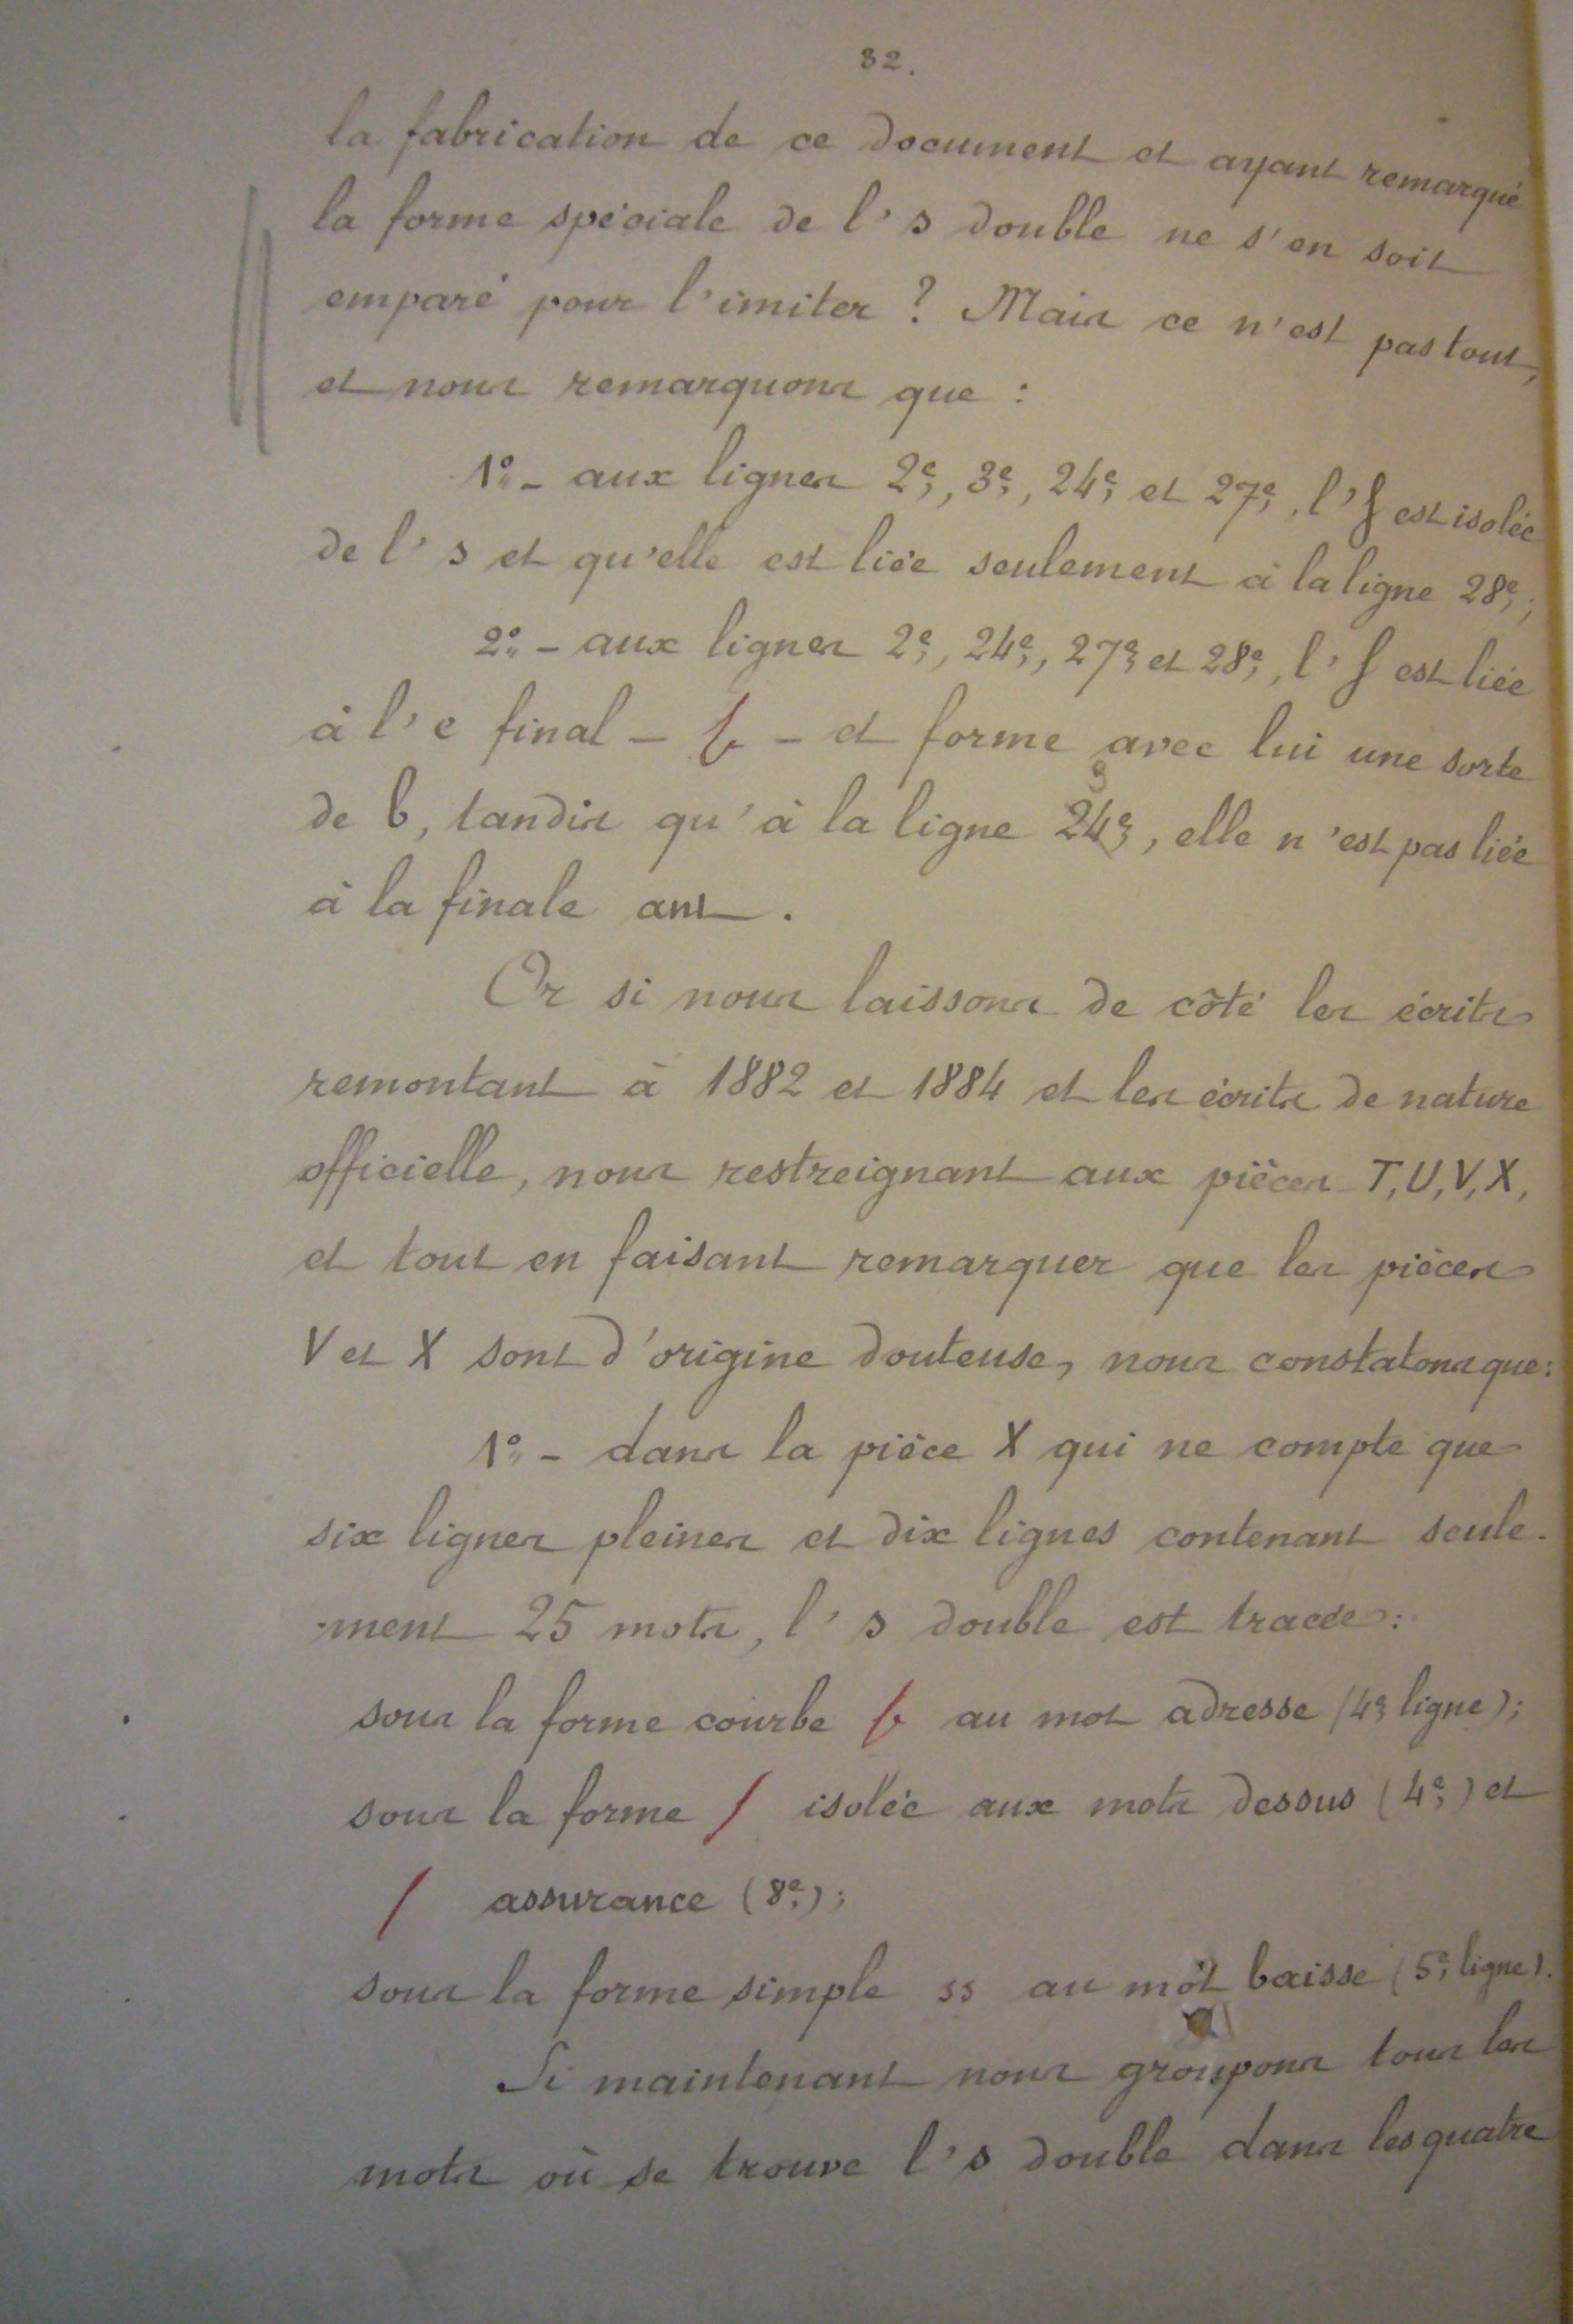 32.
la fabrication de ce document et ayant remarqué
la forme spéciale de l's double ne s'en soit
emparé pour l'imiter ? Mais ce n'est pas tout,
et nous remarquons que :
1º - aux lignes 2e, 3e, 24e et 27e, l'ʃ est isolée
de l's et qu'elle est liée seulement à la ligne 28e;
2º - aux lignes 2e, 24e, 27e et 28e, l'ʃ est liée
à l'e final - - et forme avec lui une sorte
de b, tandis qu'à la ligne 24e, elle n'est pas liée
à la finale ant.
Or si nous laissons de côté les écrits
remontant à 1882 et 1884 et les écrits de nature
officielle, nous restreignant aux pièces T, U, V, X,
et tout en faisant remarquer que les pièces
V et X sont d'origine douteuse, nous constatons que :
1º - dans la pièce X qui ne compte que
six lignes pleines et dix lignes contenant seule-
ment 25 mots, l's double est tracée :
sous la forme courbe au mot adresse (4e ligne);
sous la forme ʃ isolée aux mots dessus (4e) et
ʃ assurance (8e);
sous la forme simple ss au mot baisse (5e ligne).
Si maintenant nous groupons tous les
mots où se trouve l's double dans les quatre